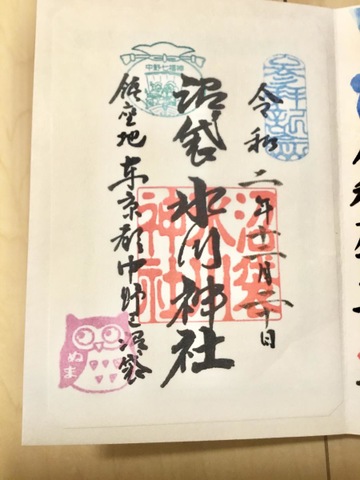 參拝記念
令和二年十一月二十日
沼袋氷川神社
沼袋
氷川
神社
中野七福神
鎮座地 東京都中野区沼袋
ぬま